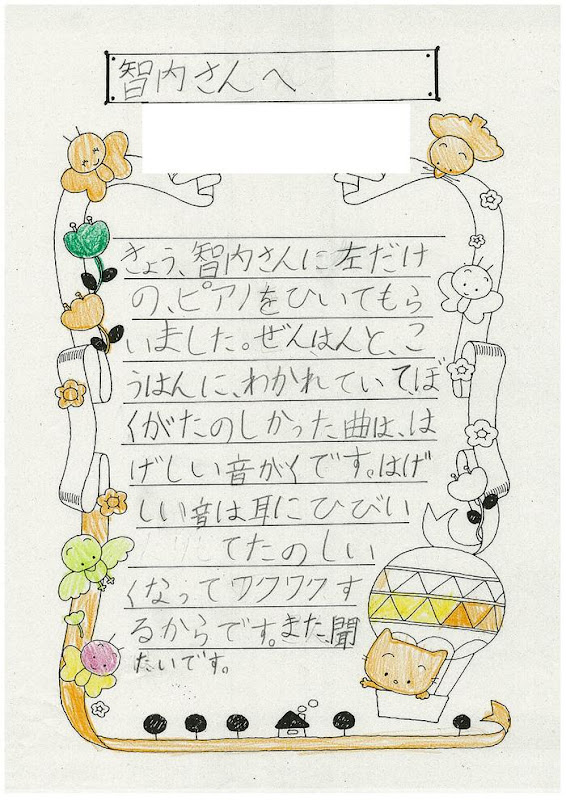 智内さんへ
きょう、智内さんに左だけ
の、ピアノをひいてもら
いました。ぜんはんと、こ
うはんに、わかれていて、ぼ
くがたのしかった曲は、は
げしい音がくです。はげ
しい音は耳にひびい
てたのしい
くなってワクワクす
るからです。また、聞
たいです。